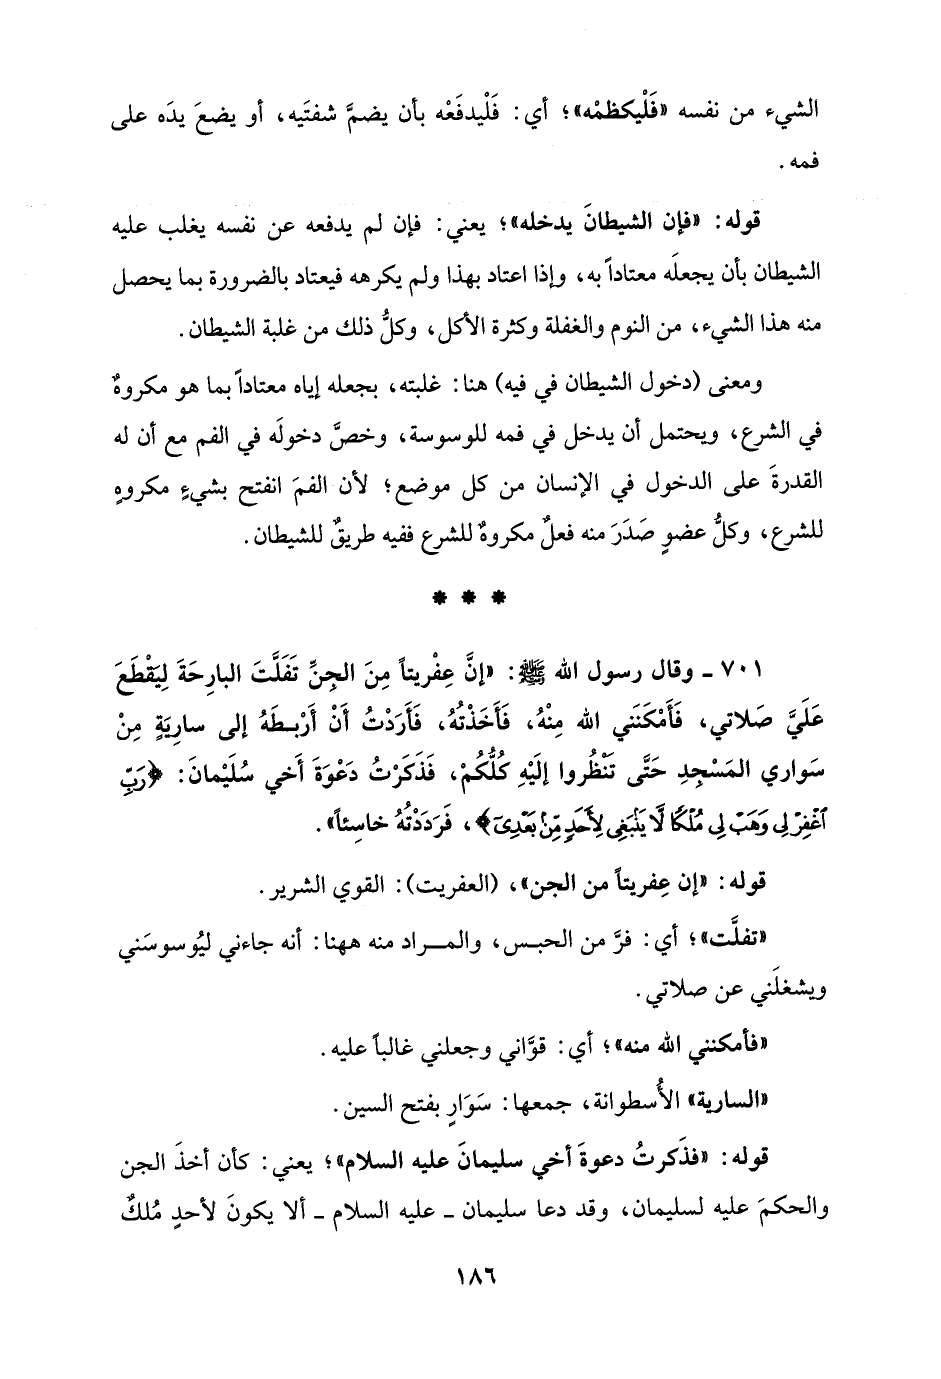 الشيء من نفسه «فَلْيكظمْه»؛ أي: فَلْيدفَعْه بأن يضمَّ شفتَيه، أو يضعَ يدَه على
فمه.
قوله: «فإن الشيطانَ يدخله»؛ يعني: فإن لم يدفعه عن نفسه يغلب عليه
الشيطان بأن يجعلَه معتاداً به، وإذا اعتاد بهذا ولم يكرهه فيعتاد بالضرورة بما يحصل
منه هذا الشيء، من النوم والغفلة وكثرة الأكل، وكلُّ ذلك من غلبة الشيطان.
ومعنى (دخول الشيطان في فيه) هنا: غلبته، بجعله إياه معتاداً بما هو مكروهٌ
في الشرع، ويحتمل أن يدخل في فمه للوسوسة، وخصَّ دخولَه في الفم مع أن له
القدرةَ على الدخول في الإنسان من كل موضع؛ لأن الفمَ انفتح بشيءٍ مكروهٍ
للشرع، وكلُّ عضوٍ صَدَرَ منه فعلٌ مكروهٌ للشرع ففيه طريقٌ للشيطان.
* * *
٧٠١ ـ وقال رسول الله ﷺ: «إنَّ عِفْريتاً مِنَ الجِنِّ تَفَلَّتَ البارِحَةَ لِيَقْطَعَ
عَلَيَّ صَلاتي، فَأَمْكَنَني الله مِنْهُ، فَأَخَذْتُهُ، فَأَرَدْتُ أَنْ أَرْبِطَهُ إلى سارِيَةٍ مِنْ
سَواري المَسْجِدِ حَتَّى تَنْظُروا إلَيْهِ كُلُّكُمْ، فَذَكَرْتُ دَعْوَةَ أَخي سُلَيْمانَ: ﴿رَبِّ
ٱغْفِرْ لِى وَهَبْ لِى مُلْكًا لَّا يَنۢبَغِى لِأَحَدٍ مِّنۢ بَعْدِىٓ﴾، فَرَدَدْتُهُ خاسِئاً».
قوله: «إن عِفريتاً من الجن»، (العفريت): القوي الشرير.
«تفلَّت»؛ أي: فرَّ من الحبس، والمراد منه ههنا: أنه جاءني ليُوسوسَني
ويشغلَني عن صلاتي.
«فأمكنني الله منه»؛ أي: قوَّاني وجعلني غالباً عليه.
«السارية» الأُسطوانة، جمعها: سَوَارٍ بفتح السين.
قوله: «فذَكرتُ دعوةَ أخي سليمانَ عليه السلام»؛ يعني: كأن أخذَ الجن
والحكمَ عليه لسليمان، وقد دعا سليمان ـ عليه السلام ـ ألا يكونَ لأحدٍ مُلكٌ
١٨٦